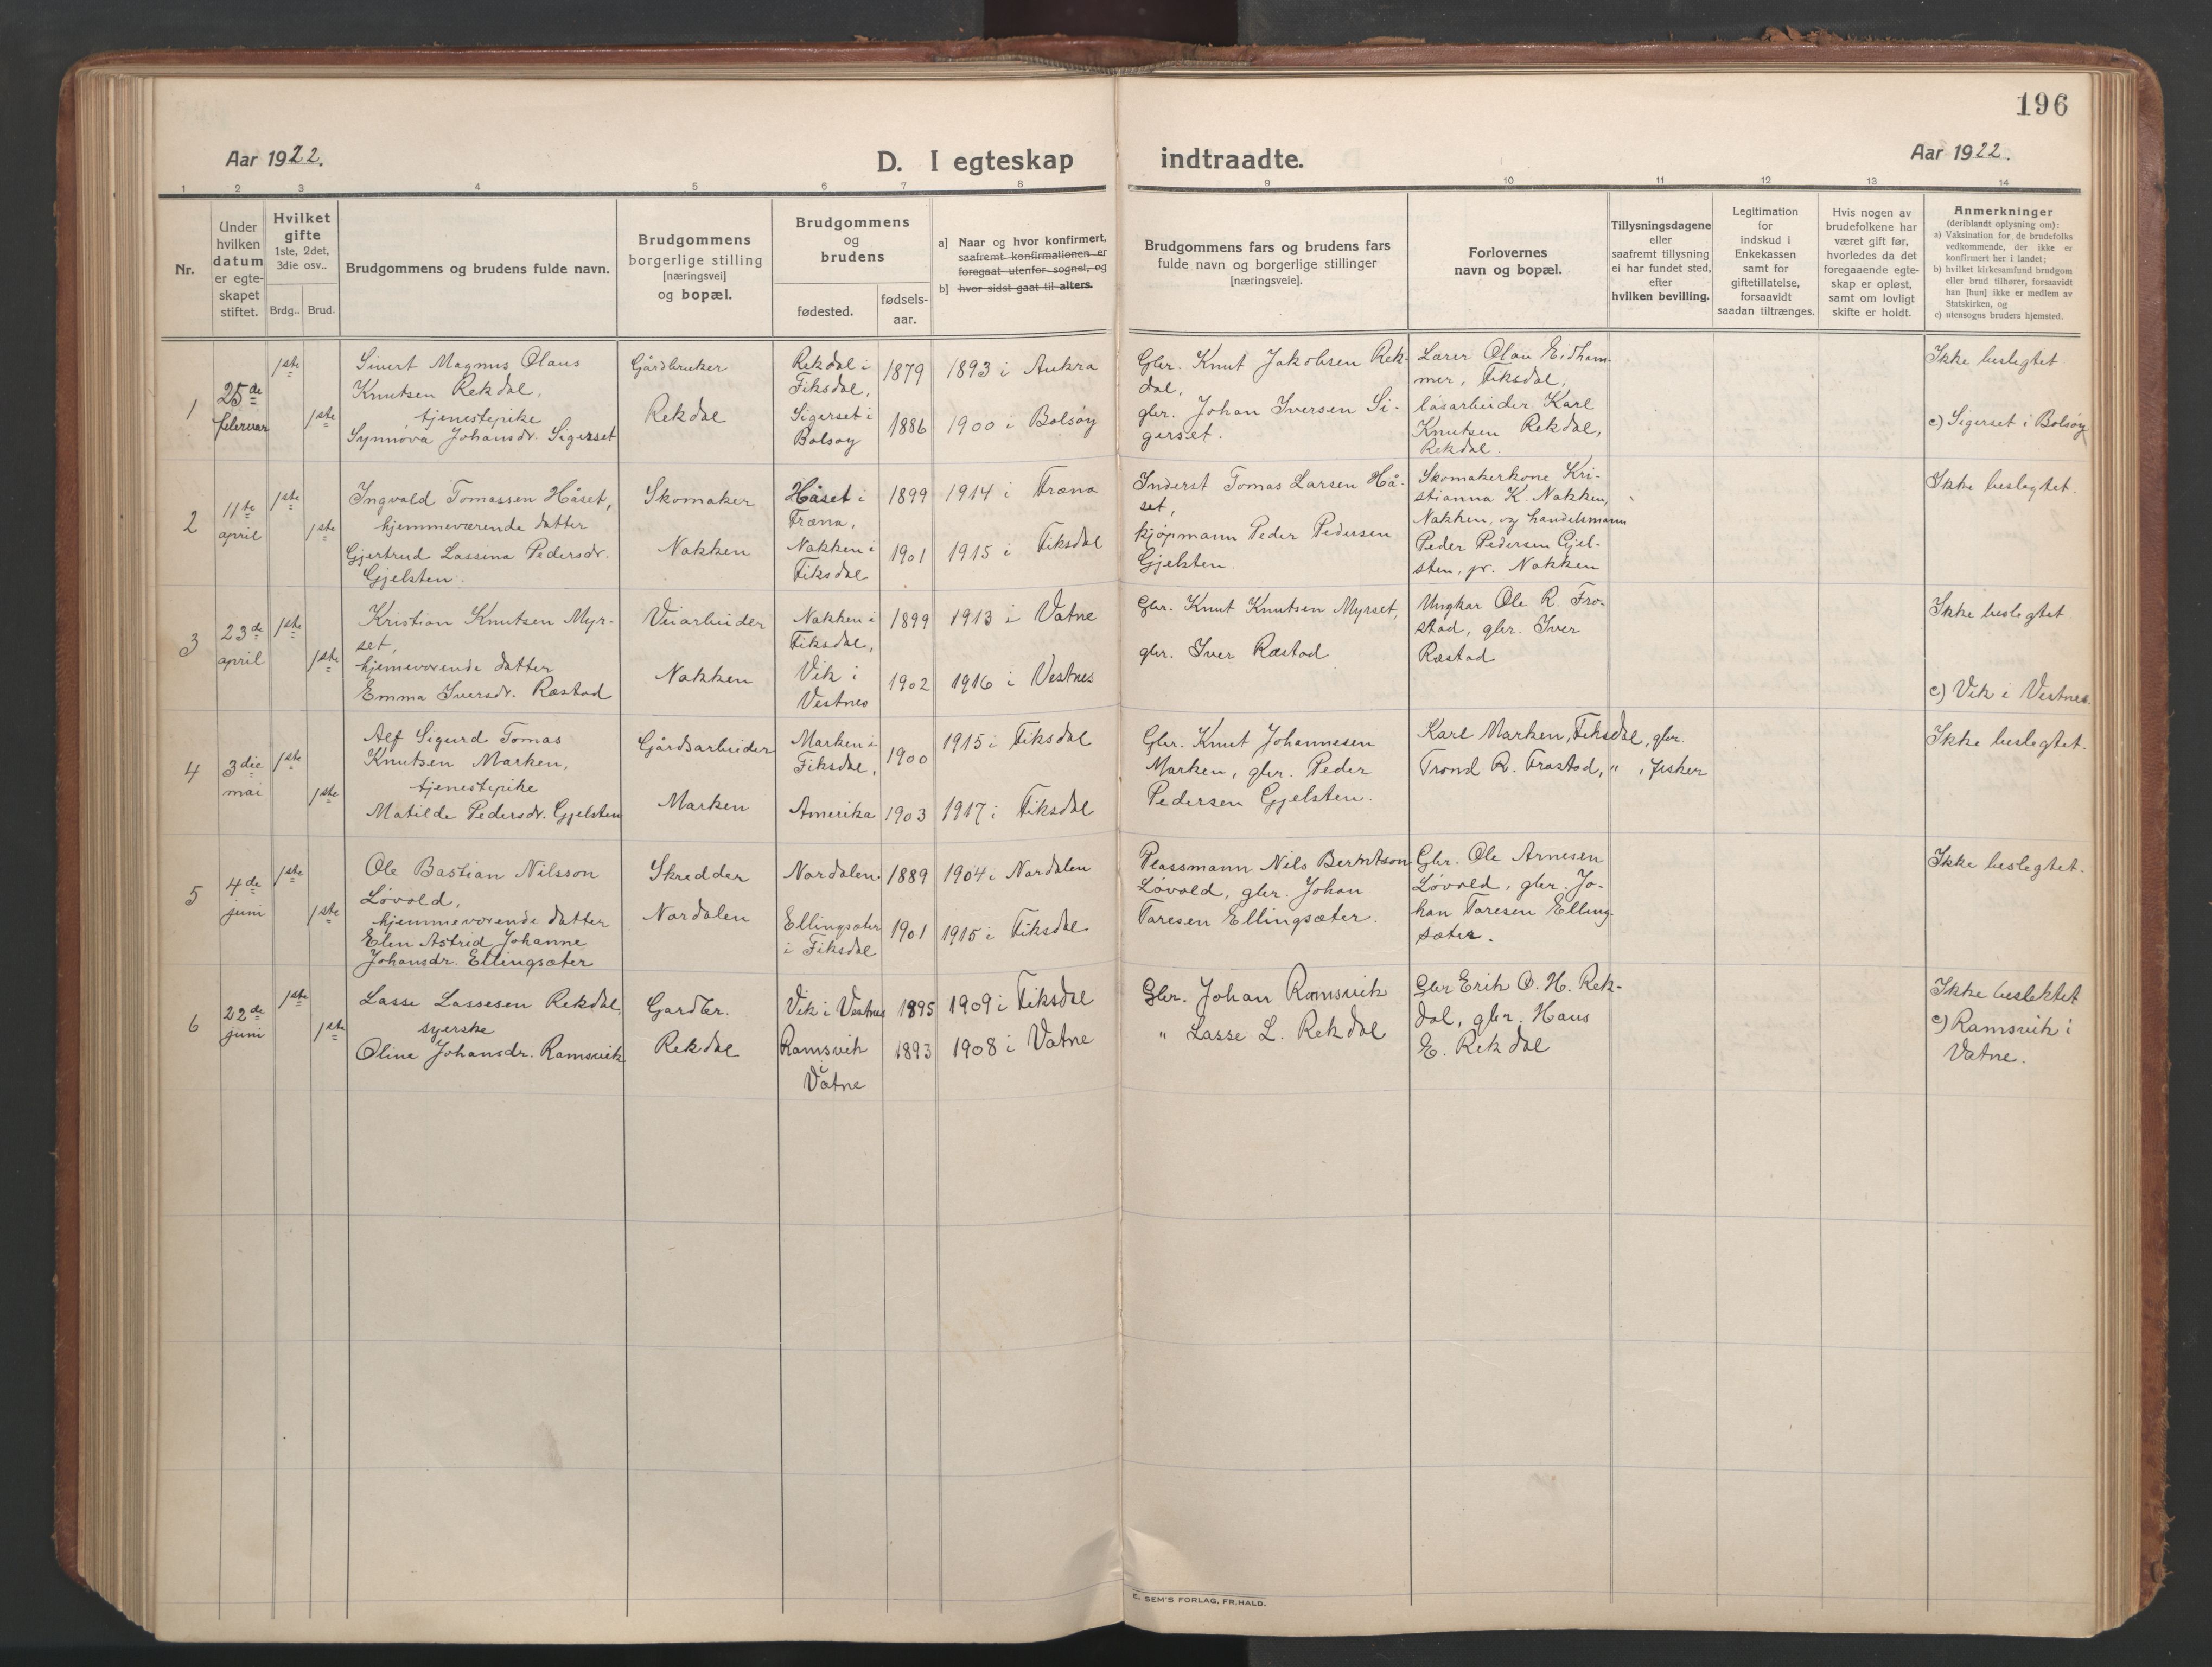 196
Aar 1922.
D. I egteskap
indtraadte.
Aar 1922.
1 2 3 4 5 6 7 8 9 10 11 12 13 14
Nr.
Under
hvilken
datum
er egte-
skapet
stiftet.
Hvilket
gifte
1ste, 2det,
3die osv..
Brdg..
Brud.
Brudgommens og brudens fulde navn.
Brudgommens
borgerlige stilling
[næringsvei]
og bopæl.
Brudgommens
og
brudens
fødested.
fødsels-
aar.
a] Naar og hvor konfirmert,
saafremt konfirmationen er
foregaat utenfor sognet, og
b] hvor sidst gaat til alters.
Brudgommens fars og brudens fars
fulde navn og borgerlige stillinger
[næringsveie].
Forlovernes
navn og bopæl.
Tillysningsdagene
eller
saafremt tillysning
ei har fundet sted,
efter
hvilken bevilling.
Legitimation
for
indskud i
Enkekassen
samt for
giftetillatelse,
forsaavidt
saadan tiltrænges.
Hvis nogen av
brudefolkene har
været gift før,
hvorledes da det
foregaaende egte-
skap er opløst,
samt om lovligt
skifte er holdt.
Anmerkninger
(deriblandt oplysning om):
a) Vaksination for de brudefolks
vedkommende, der ikke er
konfirmert her i landet;
b) hvilket kirkesamfund brudgom
eller brud tilhører, forsaavidt
han [hun] ikke er medlem av
Statskirken, og
c) utensogns bruders hjemsted.
1
25de
februar
1ste
1ste
Sivert Magnus Olaus
Knutsen Rekdal,
tjenestepike
Synnøva Johansdr. Sigerset
Gårdbruker
Rekdal
Rekdal i
Fiksdal,
Sigerset i
Bolsøy
1879
1886
1893 i Aukra
1900 i Bolsøy
Gbr. Knut Jakobsen Rek-
dal,
gbr. Johan Iversen Si-
gerset.
Lærer Olau Eidham-
mer, Fiksdal,
løsarbeider Karl
Knutsen Rekdal,
Rekdal.
Ikke beslegtet
c) Sigerset i Bolsøy
2
11te
april
1ste
1ste
Ingvald Tomassen Håset,
hjemmeværende datter
Gjertrud Lassina Pedersdr.
Gjelsten.
Skomaker
Nakken
Håset i
Fræna,
Nakken i
Fiksdal
1899
1901
1914 i Fræna
1915 i Fiksdal
Inderst Tomas Larsen Hå-
set,
kjøpmann Peder Pedersen
Gjelsten
Skomakerkone Kri-
stianna K. Nakken,
Nakken, og handelsmann
Peder Pedersen Gjel-
sten, pr. Nakken
Ikke beslegtet.
3
23de
april
1ste
1ste
Kristian Knutsen Myr-
set,
hjemeværende datter
Emma Iversdr. Ræstad
Veiarbeider
Nakken
Nakken i
Fiksdal,
Vik i
Vestnes
1899
1902
1913 i Vatne
1916 i Vestnes
Gbr. Knut Knutsen Myrset,
gbr. Iver Ræstad
Ungkar Ole R. Fro-
stad, gbr. Iver
Ræstad
Ikke beslegtet
c) Vik i Vestnes.
4
3die
mai
1ste
1ste
Alf Sigurd Tomas
Knutsen Marken,
tjenestepike
Matilde Pedersdr. Gjelsten
Gårdsarbeider
Marken
Marken i
Fiksdal,
Amerika
1900
1903
1915 i Fiksdal
1917 i Fiksdal
Gbr. Knut Johannesen
Marken, gbr. Peder
Pedersen Gjelsten.
Karl Marken, Fiksdal, gbr.
Trond R. Frostad, " , fisker
Ikke beslegtet.
5
4de
juni
1ste
1ste
Ole Bastian Nilsson
Løvold,
hjemmeværende datter
Elen Astrid Johanne
Johansdr. Ellingsæter
Skredder
Nordalen
Nordalen
Ellingsæter
i Fiksdal
1889
1901
1904 i Nordalen
1915 i Fiksdal
Plassmann Nils Berntson
Løvold, gbr. Johan
Taresen Ellingsæter.
Gbr. Ole Arnesen
Løvold, gbr. Jo-
han Taresen Elling-
sæter.
Ikke beslegtet.
6
22de
juni
1ste
1ste
Lasse Lassesen Rekdal,
syerske
Oline Johansdr. Ramsvik
Gardbr.
Rekdal
Vik i Vestnes
Ramsvik
i
Vatne
1895
1893
1909 i Fiksdal
1908 i Vatne
Gbr. Johan Ramsvik
" Lasse L. Rekdal
Gbr Erik O. H. Rek-
dal, gbr. Hans
E. Rekdal
Ikke beslektet
c) Ramsvik i
Vatne.
E. SEM'S FORLAG, FR.HALD.